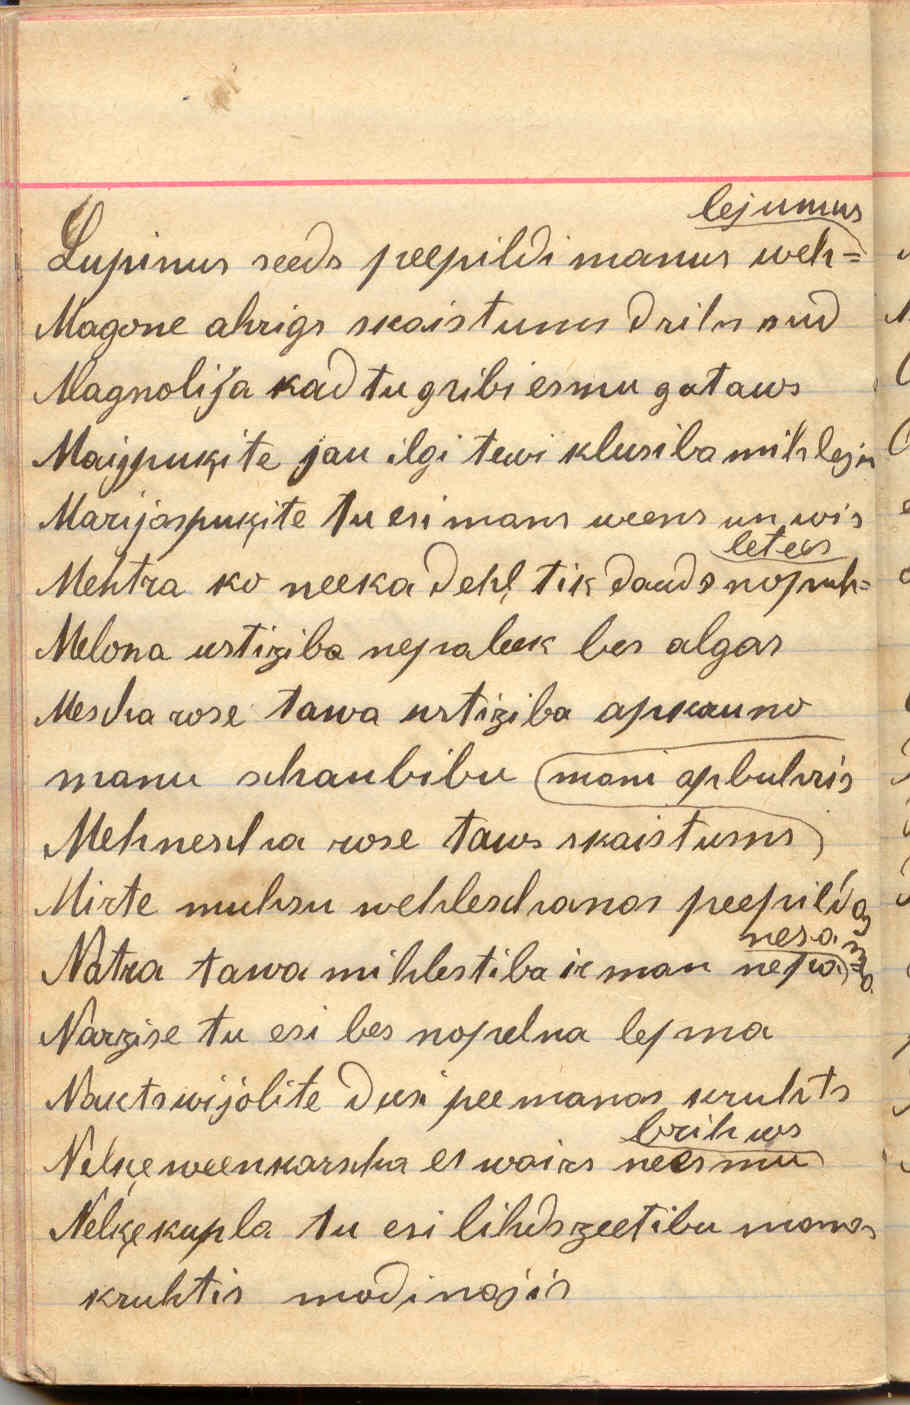 lejumus
Lupinus seeds peepildi manus weh=
Magone ahrigs skaistums drihs sud
Magnolija kad tu gribi esmu gataws
Maijpuķite jau ilgi tewi klusiba mihleju
Marijaspuķite tu esi mans weens un wis
letees
Mehtra ko neeka dehļ tik dauds nopuh=
Melona ustiziba nepaleek bes algas
Mescha rose tawa ustiziba apkauno
manu schaubibu mani apbuhris
Mehnescha rose taws skaistums
Mirte muhsu wehleschanas peepildas
nesa
Natra tawa mihlestiba ir man nepa
Narzise tu esi bes nopelna lepma
Naktswijolite dusi pee manas kruhts
brihws
Nelķe weenkarscha es wairs neesmu
Nelķe kupla tu esi lihdszeetibu manas
kruhtis modinajis